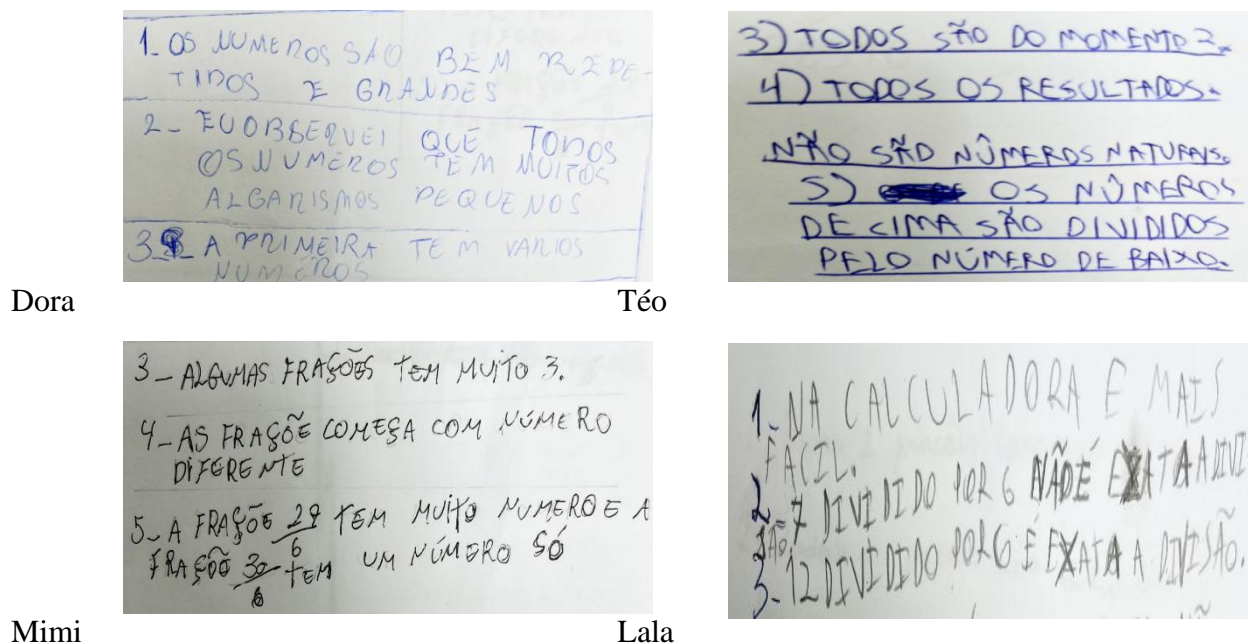 1. OS NUMEROS SAO BEM REPE-
TIDOS E GRANDES
2- EU OBBSERVEI QUE TODOS
OS NUMEROS TEM MUITOS
ALGARISMOS PEQUENOS
3- A PRIMEIRA TEM VARIOS
NUMEROS
Dora
3) TODOS SÃO DO MOMENTO 2.
4) TODOS OS RESULTADOS.
NÃO SÃO NÚMEROS NATURAIS.
5) OS NÚMEROS
DE CIMA SÃO DIVIDIDOS
PELO NÚMERO DE BAIXO.
Téo
3- ALGUMAS FRAÇÕES TEM MUITO 3.
4- AS FRAÇÕE COMEÇA COM NÚMERO
DIFERENTE
5- A FRAÇÕE 29/6 TEM MUITO NUMERO E A
FRAÇÕE 30/6 TEM UM NÚMERO SÓ
Mimi
1. NA CALCULADORA E MAIS
FACIL.
2- 7 DIVIDIDO POR 6 NÃO É EXATA A DIVI
SÃO
3- 12 DIVIDIDO POR 6 É EXATA A DIVISÃO.
Lala